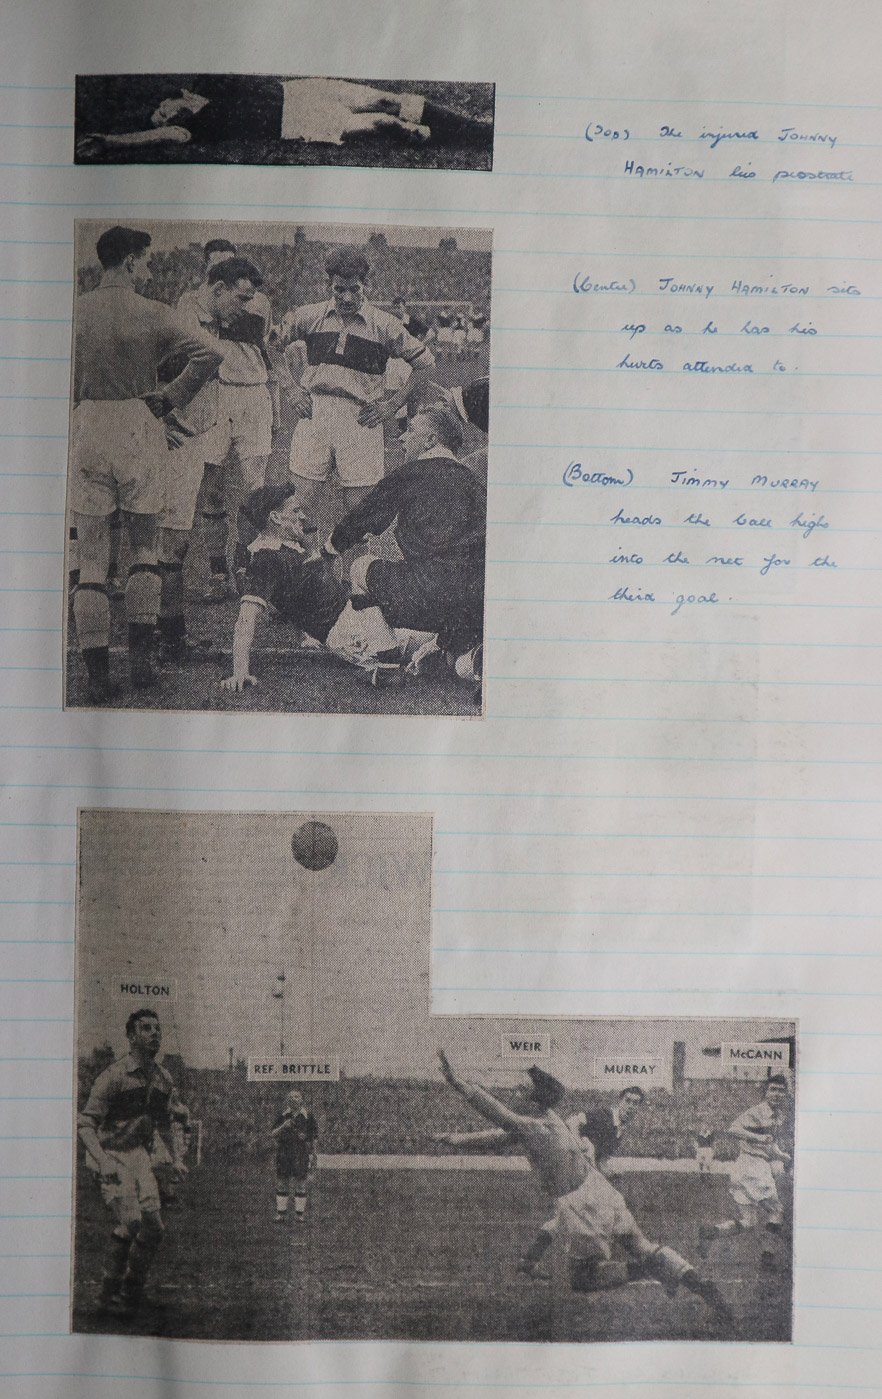 (Top) The injured JOHNNY
HAMILTON lies prostrate
(Centre) JOHNNY HAMILTON sits
up as he has his
hurts attended to.
(Bottom) JIMMY MURRAY
heads the ball high
into the net for the
third goal.
HOLTON
REF. BRITTLE
WEIR
MURRAY
McCANN